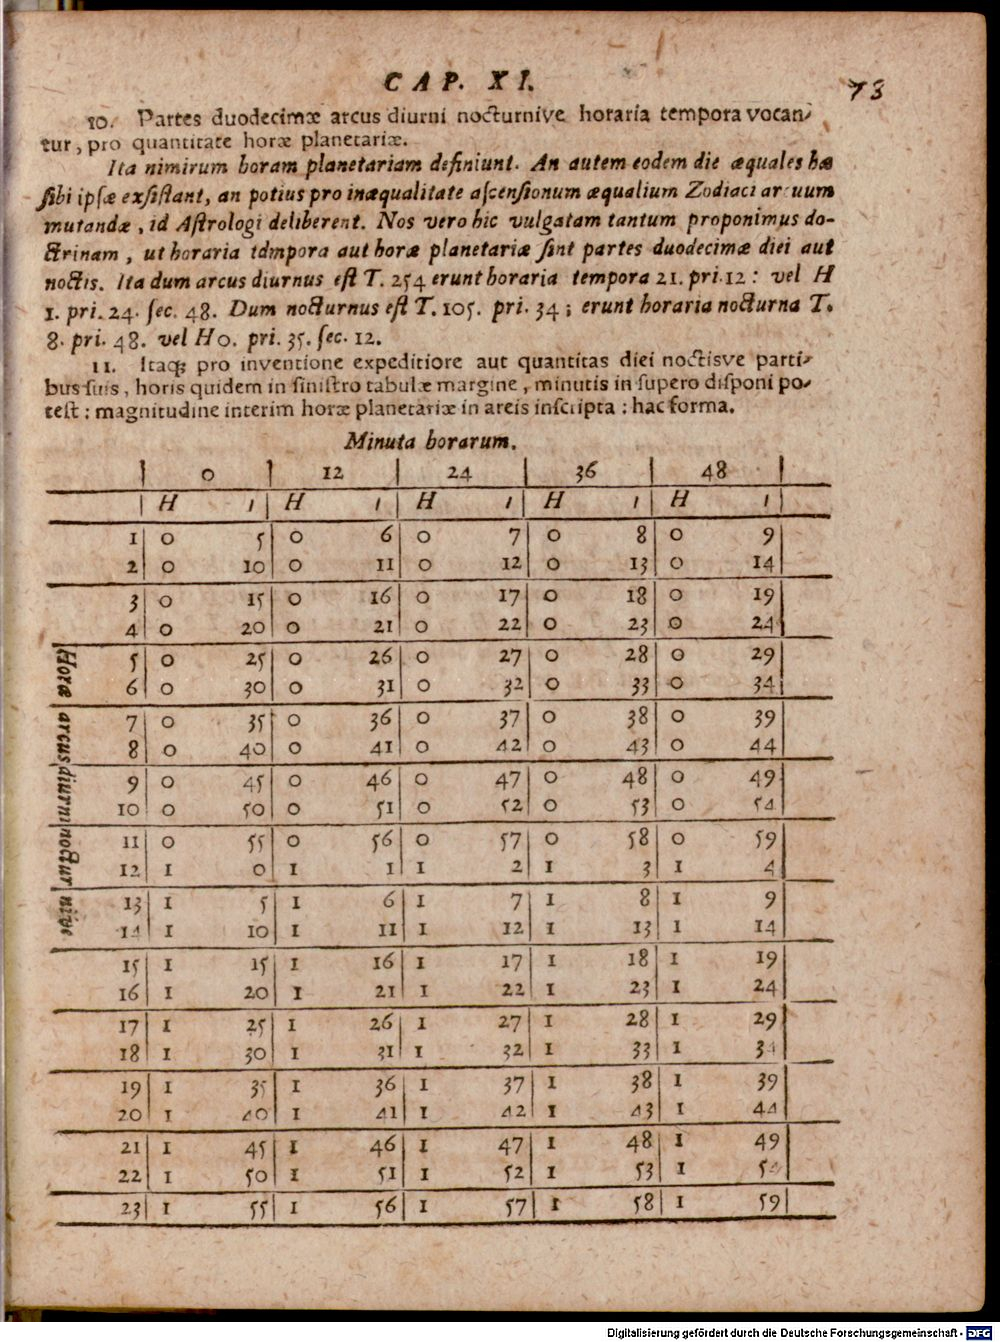 CAP. XI. 73
10. Partes duodecimæ arcus diurni nocturnive horaria tempora vocan-
tur, pro quantitate horæ planetariæ.
Ita nimirum horam planetariam definiunt. An autem eodem die æquales hæ
sibi ipsæ exsistant, an potius pro inæqualitate ascensionum æqualium Zodiaci arcuum
mutandæ, id Astrologi deliberent. Nos vero hic vulgatam tantum proponimus do-
ctrinam, ut horaria tdmpora aut horæ planetariæ sint partes duodecimæ diei aut
noctis. Ita dum arcus diurnus est T. 254 erunt horaria tempora 21. pri. 12: vel H
1. pri. 24. sec. 48. Dum nocturnus est T. 105. pri. 34; erunt horaria nocturna T.
8. pri. 48. vel H 0. pri. 35. sec. 12.
11. Itaq; pro inventione expeditiore aut quantitas diei noctisve parti-
bus suis, horis quidem in sinistro tabulæ margine, minutis in supero disponi po-
test: magnitudine interim horæ planetariæ in areis inscripta: hac forma.
Minuta horarum.
0 12 24 36 48
H 1 H 1 H 1 H 1 H 1
1 0 5 0 6 0 7 0 8 0 9
2 0 10 0 11 0 12 0 13 0 14
3 0 15 0 16 0 17 0 18 0 19
4 0 20 0 21 0 22 0 23 0 24
5 0 25 0 26 0 27 0 28 0 29
6 0 30 0 31 0 32 0 33 0 34
7 0 35 0 36 0 37 0 38 0 39
8 0 40 0 41 0 42 0 43 0 44
9 0 45 0 46 0 47 0 48 0 49
10 0 50 0 51 0 52 0 53 0 54
11 0 55 0 56 0 57 0 58 0 59
12 1 0 1 1 1 2 1 3 1 4
13 1 5 1 6 1 7 1 8 1 9
14 1 10 1 11 1 12 1 13 1 14
15 1 15 1 16 1 17 1 18 1 19
16 1 20 1 21 1 22 1 23 1 24
17 1 25 1 26 1 27 1 28 1 29
18 1 30 1 31 1 32 1 33 1 34
19 1 35 1 36 1 37 1 38 1 39
20 1 40 1 41 1 42 1 43 1 44
21 1 45 1 46 1 47 1 48 1 49
22 1 50 1 51 1 52 1 53 1 54
23 1 55 1 56 1 57 1 58 1 59
Horæ arcus diurni noctur nive
Digitalisierung gefördert durch die Deutsche Forschungsgemeinschaft - DFG